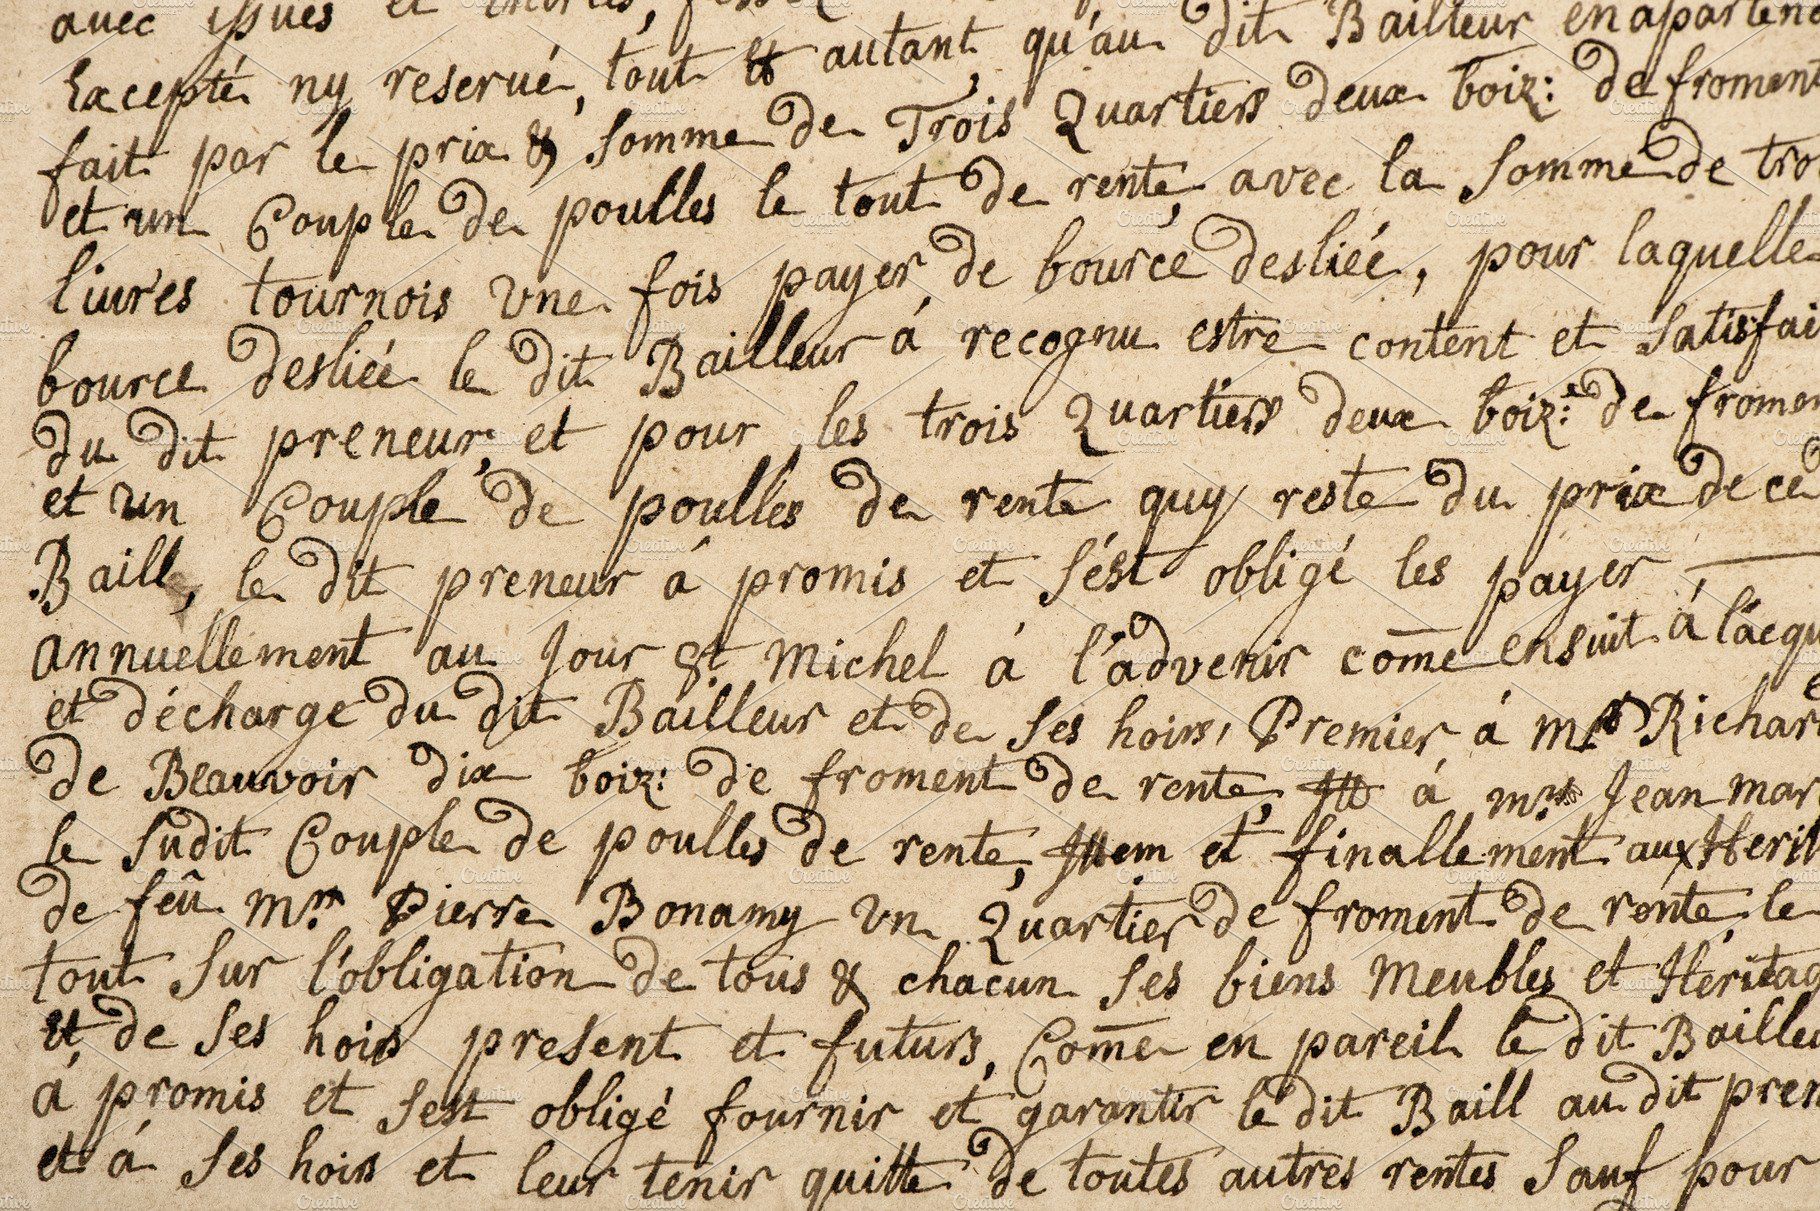 avec issues et
Excepté ny reservé, tout & autant qu'au dit Bailleur en aparten
fait par le prix & somme de Trois Quartiers deux boiz: de froment
et un Couple de poulles le tout de rente, avec la somme de tro
liures tournois vne fois payer de bource desliée, pour laquelle
bource desliée le dit Bailleur á recognu estre content et satisfai
du dit preneur, et pour les trois Quartiers deux boiz: de fromen
et un Couple de poulles de rente quy reste du prix de ce
Baill, le dit preneur á promis et s'ést obligé les payer
annuellement au Jour St Michel á l'advenir com̄e ensuit á l'acqu
et décharge du dit Bailleur et de ses hoirs, Premier á Mrs Richar
de Beauvoir dix boiz: de froment de rente, Itt á mrs Jean mar
le sudit Couple de poulles de rente, Ittem et finallement aux Herit
de feû Mr Pierre Bonamy vn Quartier de froment de rente, le
tout sur l'obligation de tous & chacun ses biens Meubles et Heritag
et de ses hoirs present et futurs, Com̄e en pareil le dit Bailleu
á promis et sest obligé fournir et garantir le dit Baill au dit pren
et á ses hoirs et leur tenir quitte de toutes autres rentes sauf pour